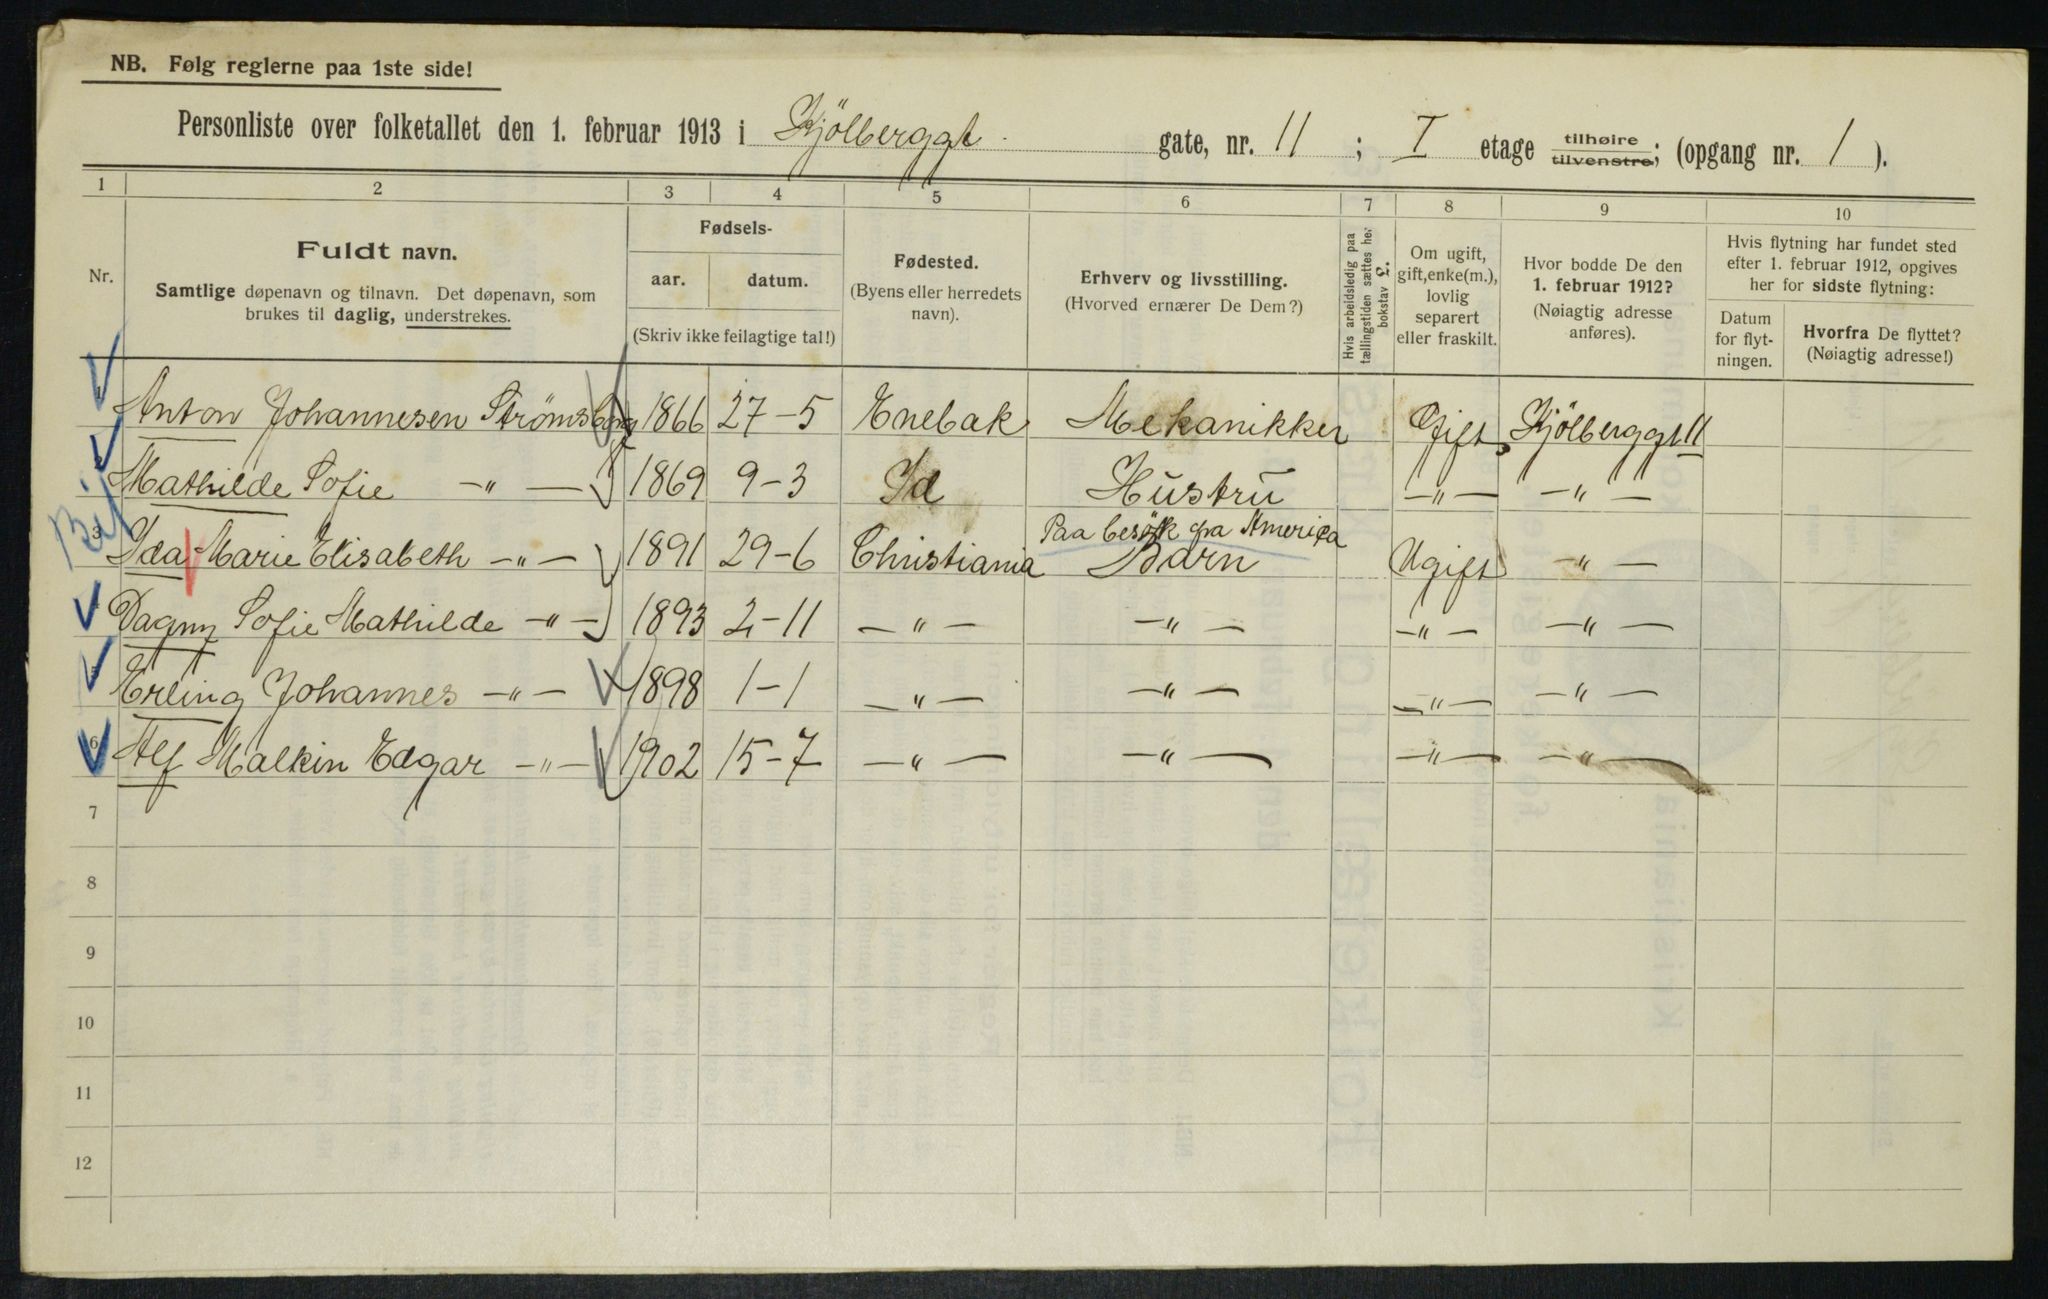 NB. Følg reglerne paa 1ste side!
Personliste over folketallet den 1. februar 1913 i Kjölberggt. gate, nr. 11 ; I etage tilhøire tilvenstre; (opgang nr. 1 ).
1 2 3 4 5 6 7 8 9 10
Nr.
Fuldt navn.
Samtlige døpenavn og tilnavn. Det døpenavn, som
brukes til daglig, understrekes.
Fødsels-
aar. datum.
(Skriv ikke feilagtige tal!)
Fødested.
(Byens eller herredets
navn).
Erhverv og livsstilling.
(Hvorved ernærer De Dem?)
Hvis arbeidsledig paa
tællingstiden sættes her
bokstav L.
Om ugift,
gift, enke(m.),
lovlig
separert
eller fraskilt.
Hvor bodde De den
1. februar 1912?
(Nøiagtig adresse
anføres).
Hvis flytning har fundet sted
efter 1. februar 1912, opgives
her for sidste flytning:
Datum
for flyt-
ningen.
Hvorfra De flyttet?
(Nøiagtig adresse!)
1 Anton Johannesen Strømsberg 1866 27-5 Enebak Mekanikker Gift Kjölberggt 11
2 Mathilde Sofie -"- 1869 9-3 Id Hustru -"- -"-
Paa besök fra America
3 Ida Marie Elisabeth -"- 1891 29-6 Christiania Barn Ugift -"-
4 Dagny Sofie Mathilde -"- 1893 2-11 -"- -"- -"- -"-
5 Erling Johannes -"- 1898 1-1 -"- -"- -"- -"-
6 Alf Malkin Edgar -"- 1902 15-7 -"- -"- -"- -"-
7
8
9
10
11
12